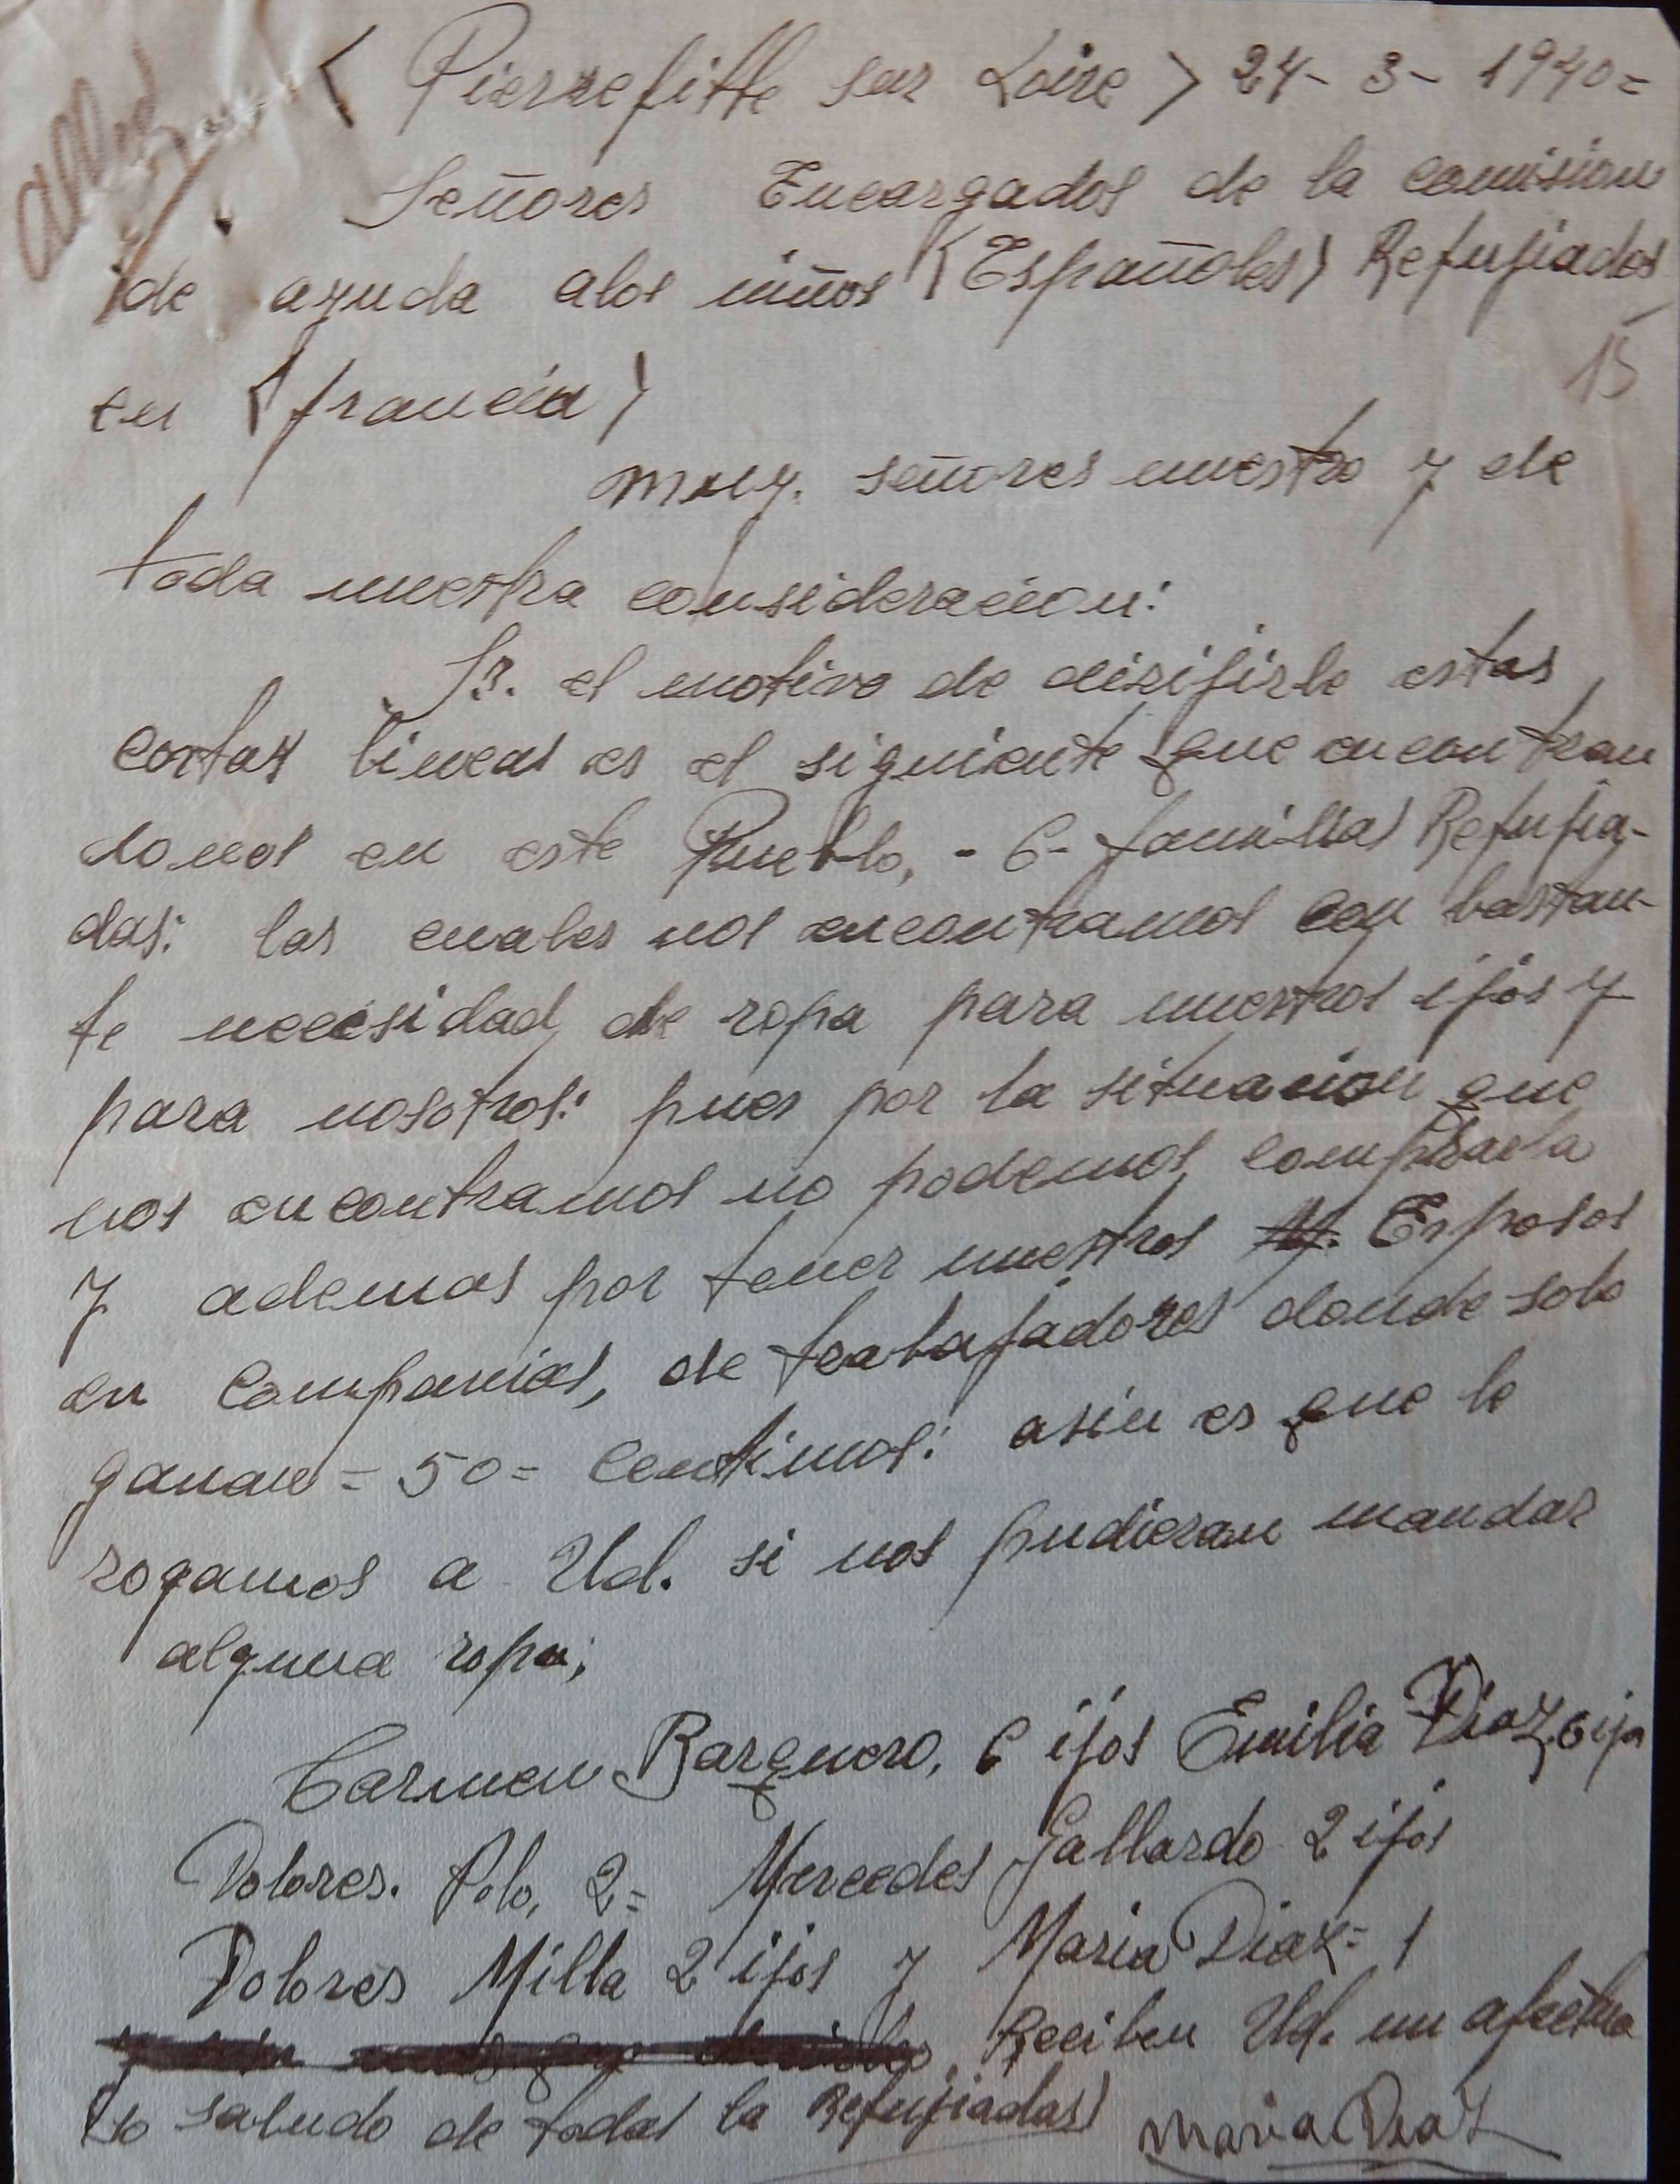 < Pierrefitte sur Loire > 24- 3- 1940=
Señores Encargados de la comision
de ayuda alos niños <Españoles> Refujiados
15
en < francia >
muy. señores nuestro y de
toda nuestra consideracion:
Sr. el motivo de dirijirle estas
cortas lineas es el siguiente que encontran
donos en este Pueblo, - 6 - familias Refujia-
das: las cuales nos encontramos con bastan-
te necesidad de ropa para nuestros ijos y
para nosotros: pues por la situacion que
nos encontramos no podemos comprarla
y ademas por tener nuestros Esposos
en Companias, de trabajadores donde solo
ganan = 50 = Centimos: asin es que le
rogamos a Ud. si nos pudieran mandar
alguna ropa;
Carmen Barquero, 6 ijos Emilia Diaz, 6 ijos
Dolores. Polo, 2 = Mercedes Gallardo 2 ijos
Dolores Milla 2 ijos y Maria Diaz = 1
Reciben Ud. un afectuo
so saludo de todas la Refujiadas
Maria Diaz